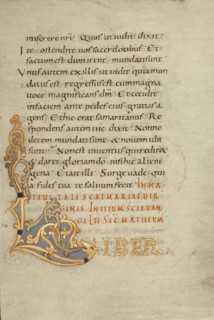 misere nri Quos ut uidit dixit
Ite ostendite uos sacerdotibus Et
factum est dum irent mundati sunt
Unus autem ex illis ut uidit quia mun
datus est regressus est cum magna
uoce magnificans dm Et cecidit
in faciem ante pedes eius gratias a
gens Et hic erat samaritanus Re
spondens autem ihc dixit Nonne
decem mundati sunt & nouem ubi
sunt Non est inuentus qui rediret
& daret gloriam do nisi hic alieni
gena Et ait illi Surge uade quia
fides tua te saluum fecit IN NA
INITIUM SCI EUAN
GELII SCDM MATHEUM
LIBER